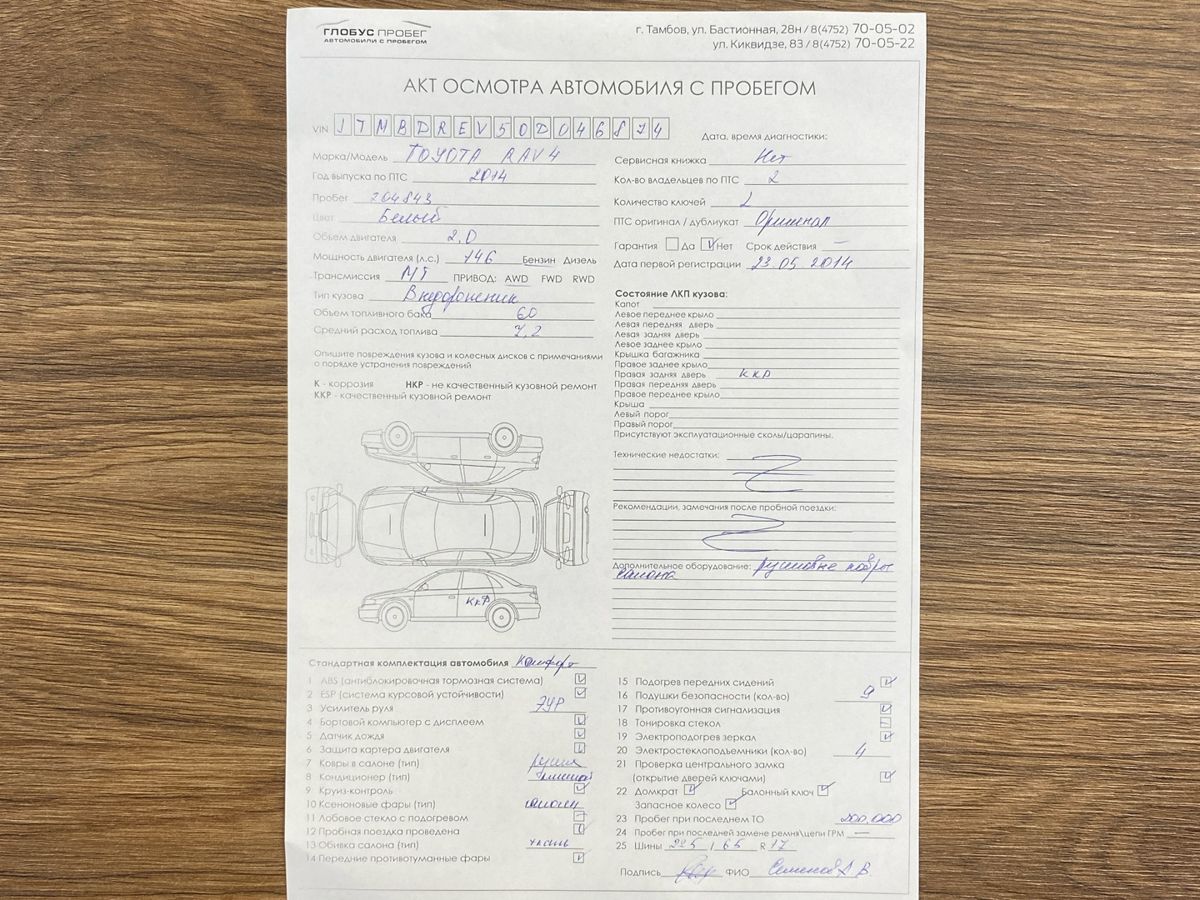 ГЛОБУС ПРОБЕГ
АВТОМОБИЛИ С ПРОБЕГОМ
г. Тамбов, ул. Бастионная, 28н / 8(4752) 70-05-02
ул. Киквидзе, 83 / 8(4752) 70-05-22
АКТ ОСМОТРА АВТОМОБИЛЯ С ПРОБЕГОМ
VIN JTMBDREV50D046874
Дата, время диагностики:
Марка/Модель TOYOTA RAV4
Год выпуска по ПТС 2014
Пробег 204843
Цвет Белый
Объем двигателя 2,0
Мощность двигателя (л.с.) 146 Бензин Дизель
Трансмиссия МТ ПРИВОД: AWD FWD RWD
Тип кузова Внедорожник
Объем топливного бака 60
Средний расход топлива 7,2
Сервисная книжка Нет
Кол-во владельцев по ПТС 2
Количество ключей
ПТС оригинал / дубликат Оригинал
Гарантия Да V Нет Срок действия —
Дата первой регистрации 23.05.2014
Опишите повреждения кузова и колесных дисков с примечаниями
о порядке устранения повреждений
К - коррозия НКР - не качественный кузовной ремонт
ККР - качественный кузовной ремонт
ККР
Состояние ЛКП кузова:
Капот
Левое переднее крыло
Левая передняя дверь
Левая задняя дверь
Левое заднее крыло
Крышка багажника
Правое заднее крыло
Правая задняя дверь ККР
Правая передняя дверь
Правое переднее крыло
Крыша
Левый порог
Правый порог
Присутствуют эксплуатационные сколы/царапины.
Технические недостатки:
Рекомендации, замечания после пробной поездки:
Дополнительное оборудование:
салона
Стандартная комплектация автомобиля Комфорт
1 ABS (антиблокировочная тормозная система) V
2 ESP (система курсовой устойчивости) V
3 Усилитель руля ЭУР
4 Бортовой компьютер с дисплеем V
5 Датчик дождя V
6 Защита картера двигателя V
7 Ковры в салоне (тип)
8 Кондиционер (тип)
9 Круиз-контроль V
10 Ксеноновые фары (тип)
11 Лобовое стекло с подогревом —
12 Пробная поездка проведена V
13 Обивка салона (тип) ткань
14 Передние противотуманные фары V
15 Подогрев передних сидений V
16 Подушки безопасности (кол-во) 9
17 Противоугонная сигнализация V
18 Тонировка стекол —
19 Электроподогрев зеркал V
20 Электростеклоподъемники (кол-во) 4
21 Проверка центрального замка
(открытие дверей ключами) V
22 Домкрат V Балонный ключ V
Запасное колесо V
23 Пробег при последнем ТО 200,000
24 Пробег при последней замене ремня\цепи ГРМ —
25 Шины 225 / 65 R 17
Подпись ФИО Семенов А В